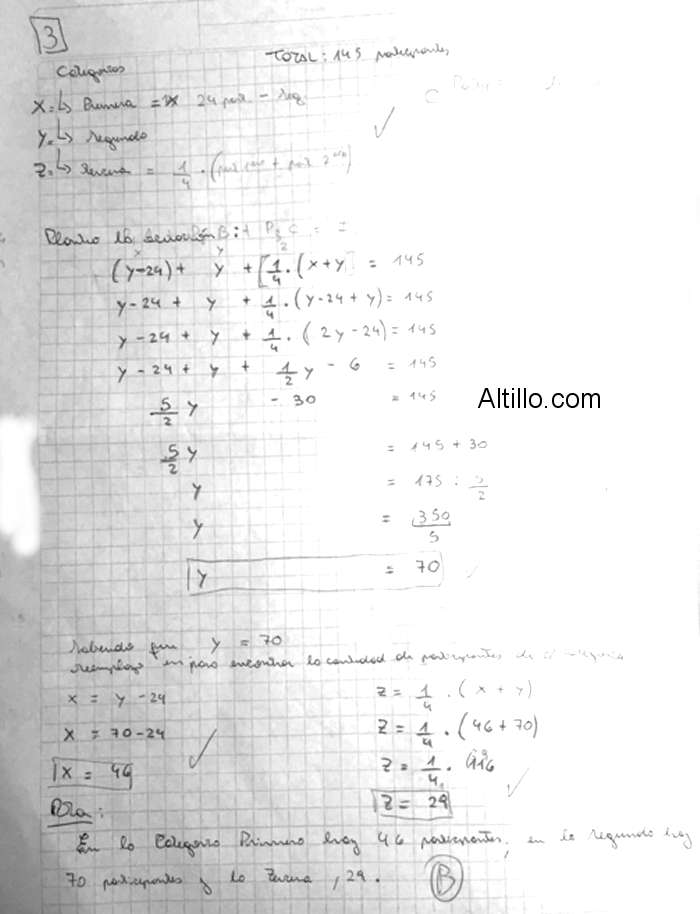 3
TOTAL: 145 participantes
Categorias
X=↳ Primera = 24 part - seg.
Y=↳ segundo
Z=↳ tercera = 1/4 . (part pera + part 2da)
Planteo la
(y-24) + y + [1/4 . (x+y] = 145
y-24 + y + 1/4 . (y-24 + y) = 145
y-24 + y + 1/4 . ( 2y-24) = 145
y - 24 + y + 1/2 y - 6 = 145
5/2 y - 30 = 145
Altillo.com
5/2 y = 145 + 30
y = 175 : 5/2
y = 350/5
y = 70
Sabiendo que y = 70
reemplazo para encontrar la cantidad de participantes de categoria
x = y - 24
z = 1/4 . (x + y)
x = 70-24
z = 1/4 . (46 + 70)
x = 46
z = 1/4 . 116
z = 29
Rta:
En la Categoria Primera hay 46 participantes, en la segunda hay
70 participantes y la tercera, 29.
B